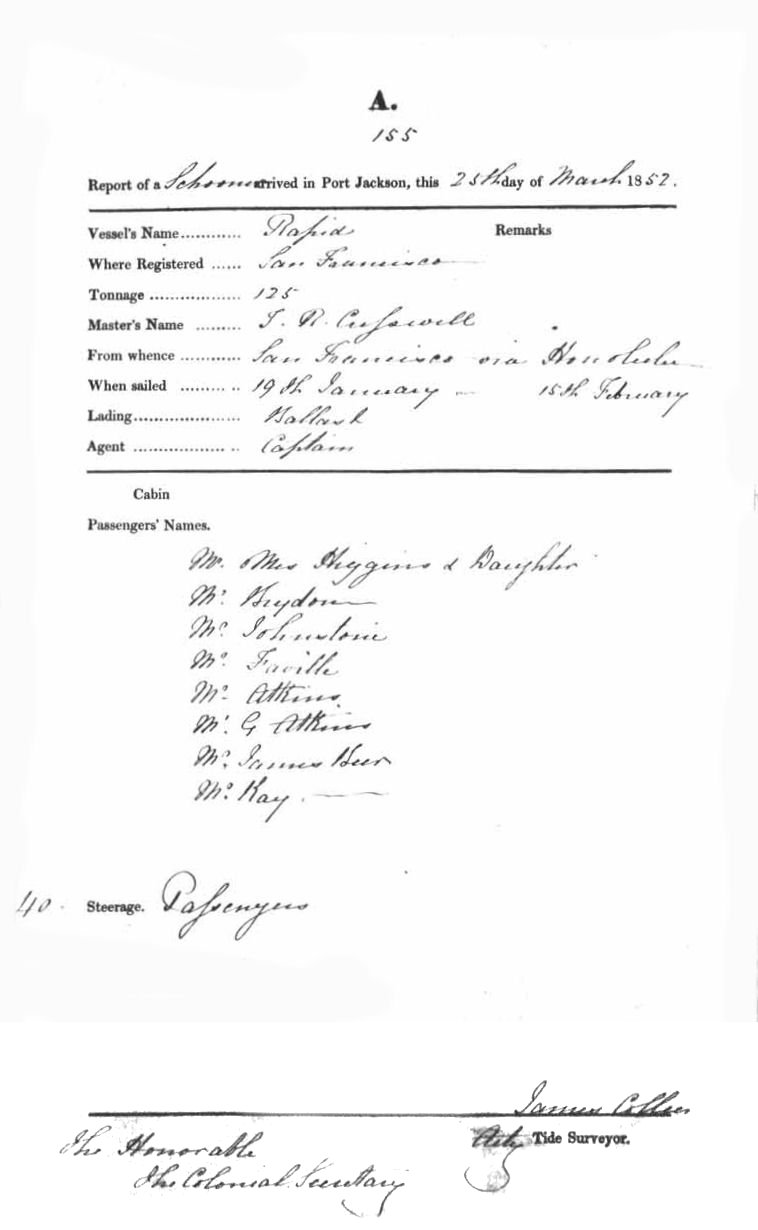 A.
155
Report of a Schooner arrived in Port Jackson, this 25th day of March 1852.
Vessel's Name............ Rapid Remarks
Where Registered ...... San Francisco
Tonnage .................. 125
Master's Name ......... T. R. Cusswill
From whence ............ San Francisco via Honolulu
When sailed ......... .. 19th January – 15th February
Lading..................... Ballast
Agent .................. .. Captain
Cabin
Passengers' Names.
Mr. Mrs Higgins & Daughter
Mr. Brydon
Mr. Johnstone
Mr. Faville
Mr. Atkins
Mr. G Atkins
Mr. James Beer
Mr. Kay.
40. Steerage. Passengers
James Collier
Actg Tide Surveyor.
The Honorable
The Colonial Secretary